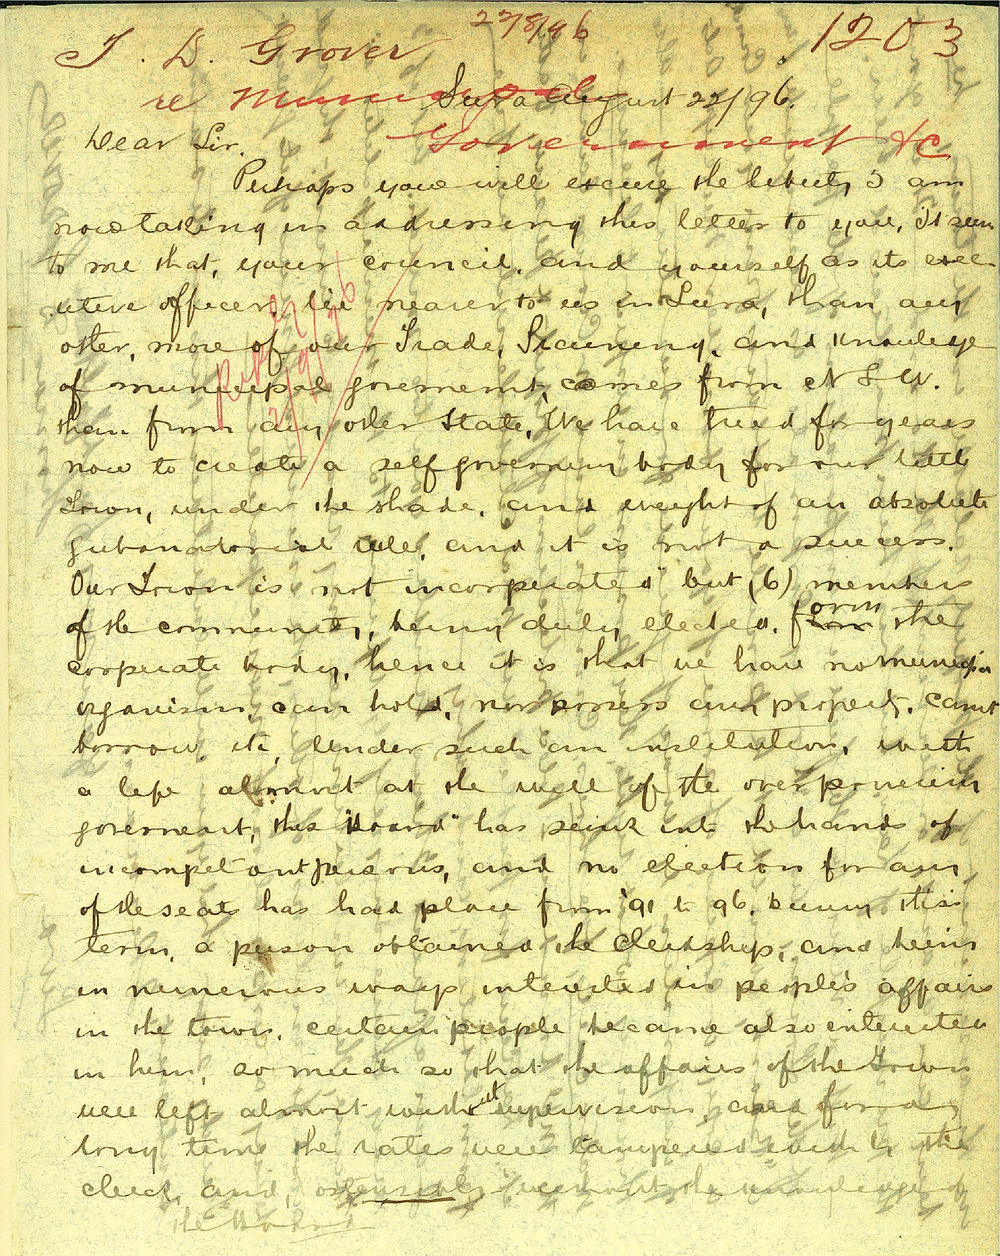 22/8/96
J. D. Grover 1203
re Municipal
Suva August 22/96.
Government &c
Dear Sir.
Perhaps you will excuse the liberty I am
now taking in addressing this letter to you, It seem
to me that, your council, and yourself as its exec
utive officer, lie nearer to us in Suva, than any
other, more of our Trade, Training, and Knowledge
of municipal goverment, comes from N S W.
than from any other State, We have tried for years
now to create a self governing body for our little
Town, under the shade, and weight of an absolute
gubanatorial rule, and it is not a success.
Our Town is not incorporated" but (6) members
of the community, being duly elected, form the
corporate body, hence it is that we have no municipa
organism, can hold, nor possess any property. cannt
borrow, etc, Under such an institution, with
a life almost at the will of the over powering
goverment, this "Board" has sunk into the hands of
incompetant persons, and no election for any
of the seats has had place from '91 to 96. During this
term, a person obtained the Clerkship, and being
in numerous ways interested in people's affairs
in the town, certain people became also interested
in him, so much so that the affairs of the Town
were left almost without supervision, and for a
long time the rates were tampered with by the
clerk, and, ostensibly without the knowledge of
the Board